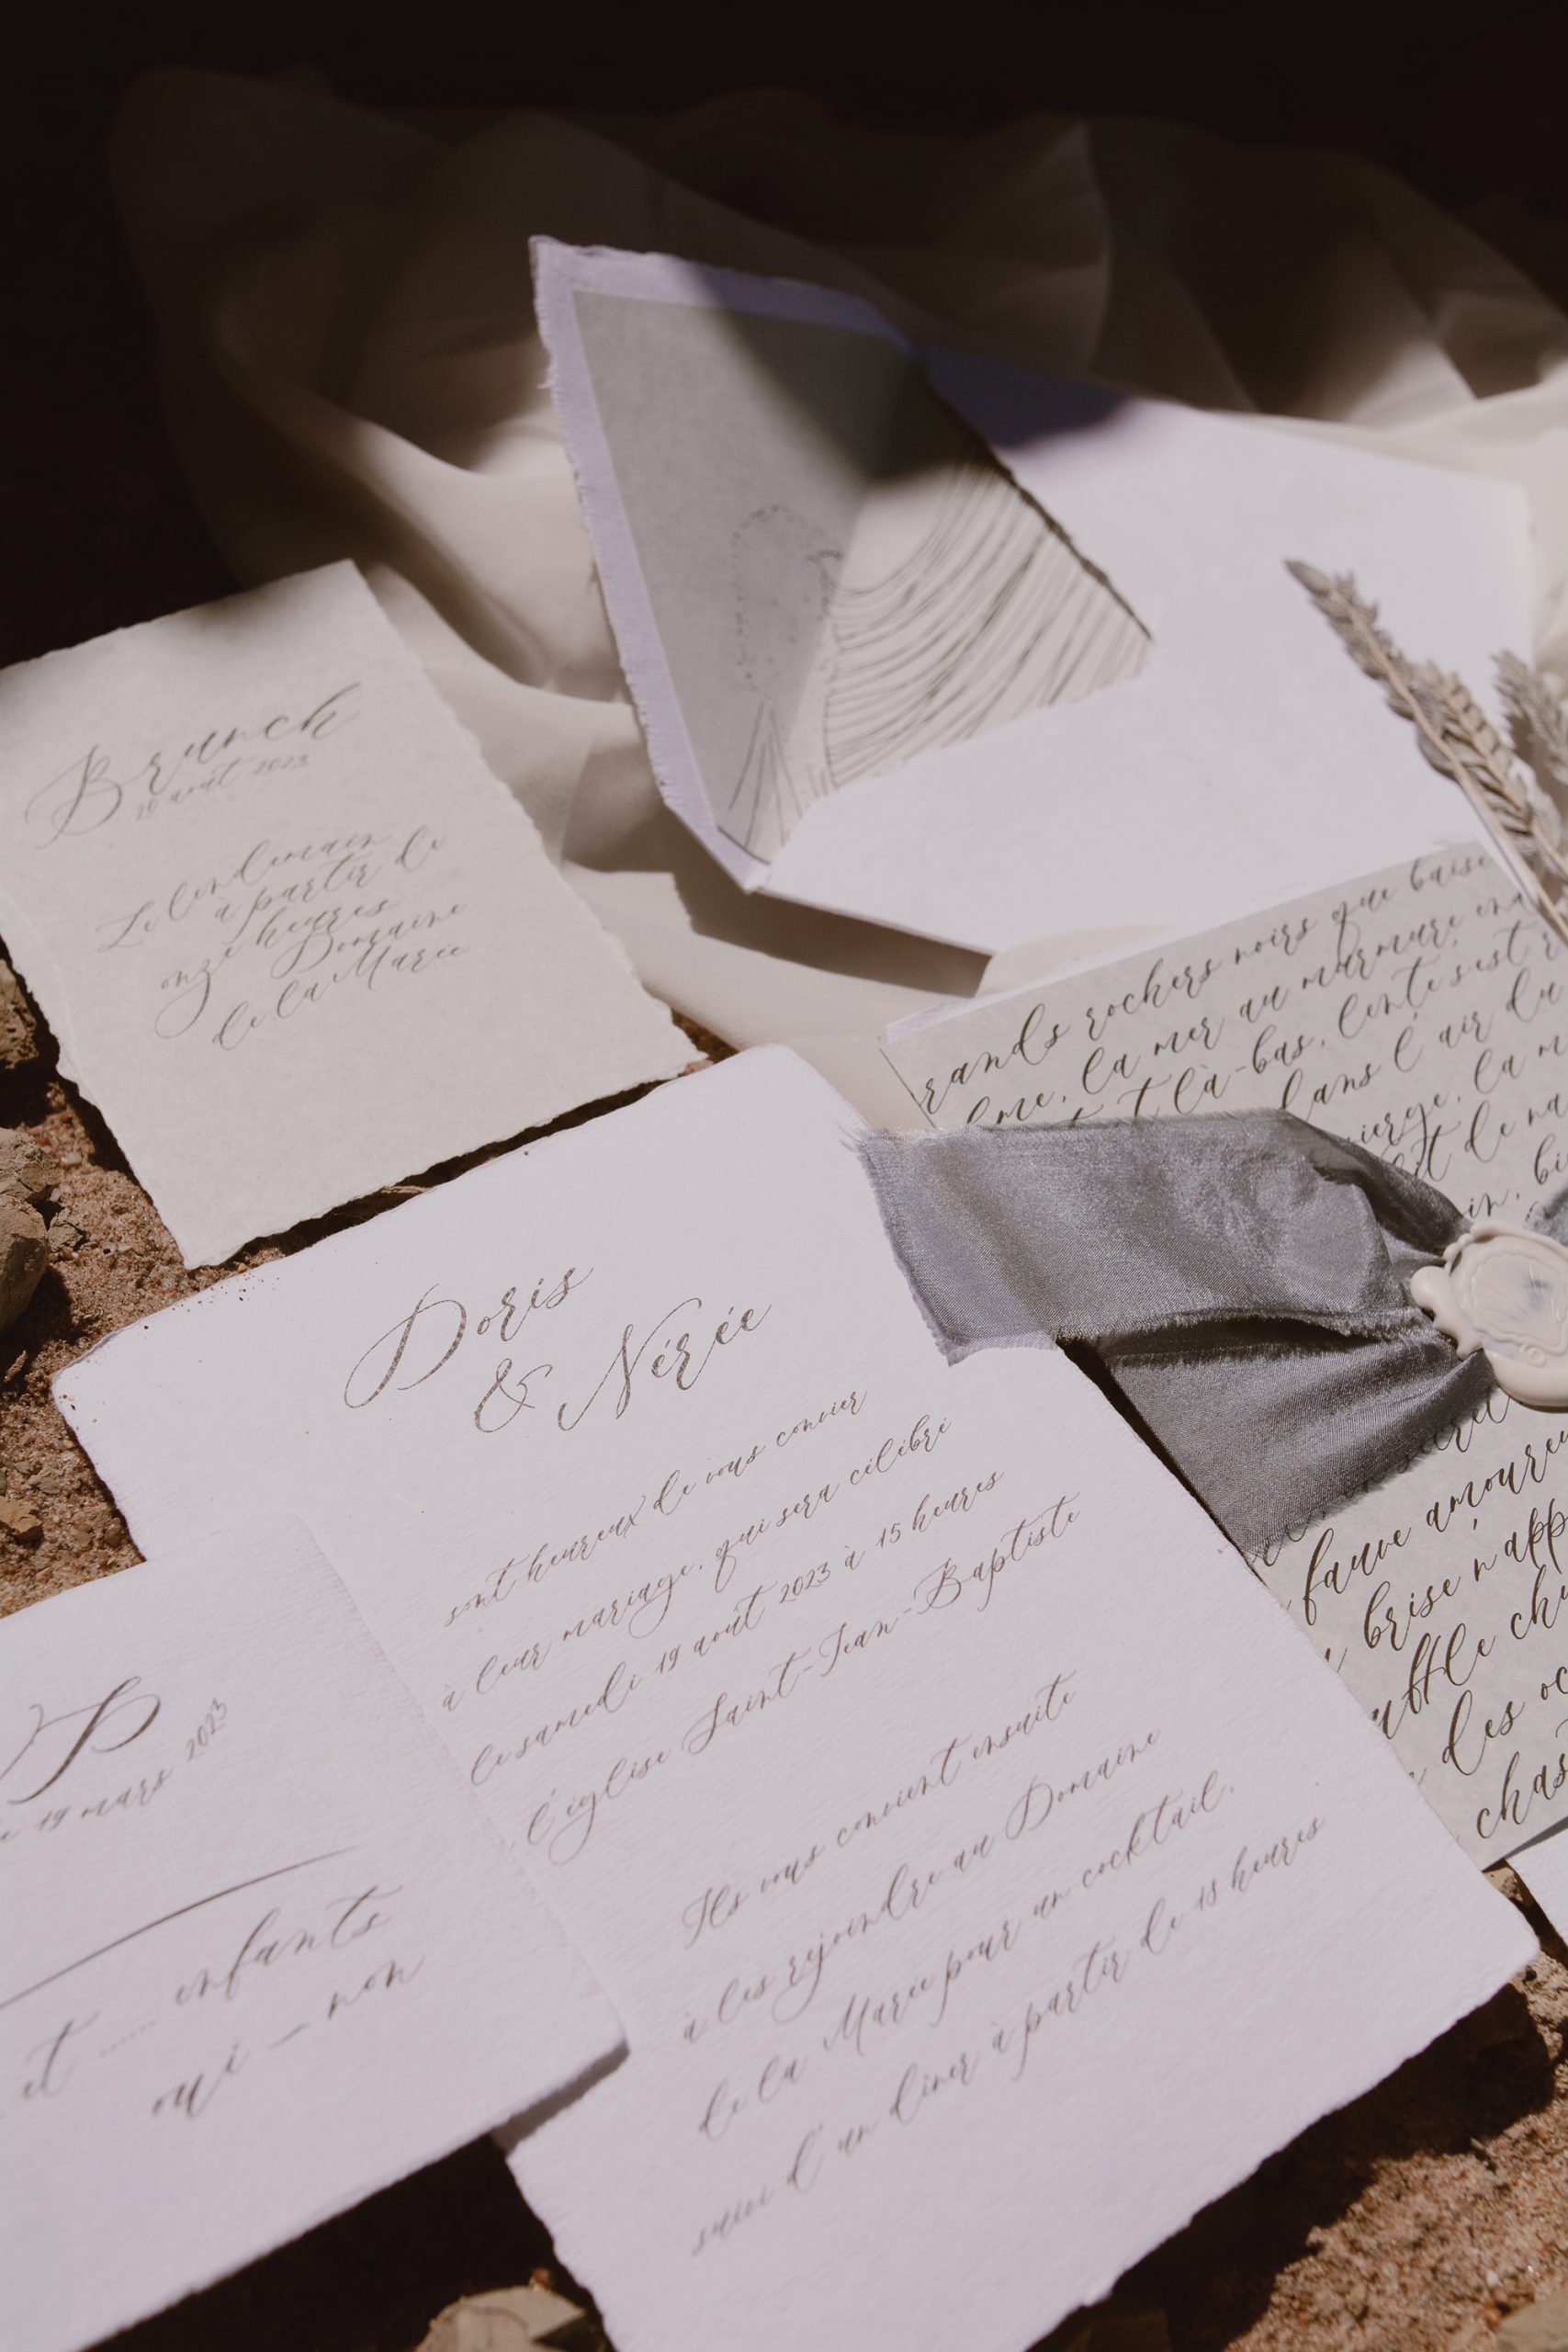 Brunch
20 août 2023
Le lendemain
à partir de
onze heures
Domaine
de la Marée
Doris
& Nérée
sont heureux de vous convier
à leur mariage, qui sera célébré
le samedi 19 août 2023 à 15 heures
l'église Saint-Jean-Baptiste
Ils vous convient ensuite
à les rejoindre au Domaine
de la Marée pour un cocktail,
suivi d'un dîner à partir de 18 heures
19 mars 2023
et ...... enfants
oui - non
rands rochers noirs que baise
lme, la mer au murmure
là-bas, lente s'est
dans l'air du
ierge, la
it de
in,
fauve amoureu
brise n'app
uffle
des
chas